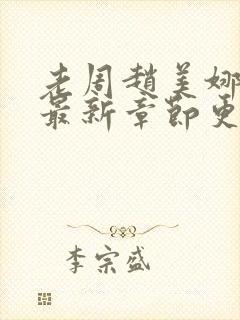 老周趙美娜
最新章節更
李宗盛